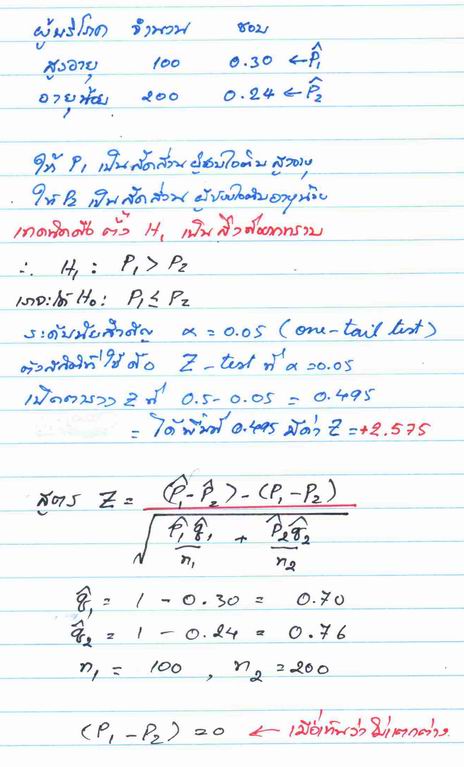 ผู้บริโภค จำนวน ชอบ
สูงอายุ 100 0.30 ← P̂₁
อายุน้อย 200 0.24 ← P̂₂
ให้ P₁ เป็นสัดส่วนผู้ชอบไอติม สูงอายุ
ให้ P₂ เป็นสัดส่วน ผู้ชอบไอติมอายุน้อย
เทคนิคคือ ตั้ง H₁ เป็นสิ่งที่อยากทราบ
∴ H₁ : P₁ > P₂
เราจะได้ H₀ : P₁ ≤ P₂
ระดับนัยสำคัญ α = 0.05 (one-tail test)
ตัวสถิติที่ใช้ คือ Z-test ที่ α = 0.05
เปิดตาราง Z ที่ 0.5 - 0.05 = 0.495
= ได้พื้นที่ 0.495 มีค่า Z = +2.575
สูตร Z = (P̂₁ - P̂₂) - (P₁ - P₂)
√ P̂₁q̂₁/n₁ + P̂₂q̂₂/n₂
q̂₁ = 1 - 0.30 = 0.70
q̂₂ = 1 - 0.24 = 0.76
n₁ = 100 , n₂ = 200
(P₁ - P₂) = 0 ← เมื่อเห็นว่าไม่แตกต่าง